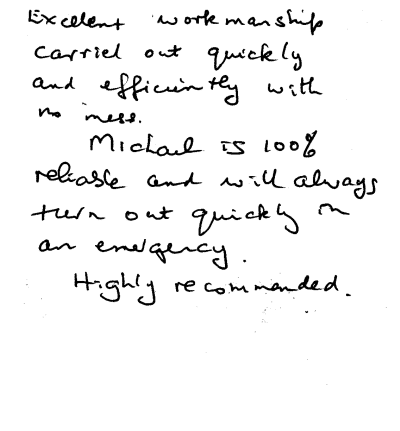 Excellent workmanship
carried out quickly
and efficiently with
no mess.
Michael is 100%
reliable and will always
turn out quickly in
an emergency.
Highly recommended.